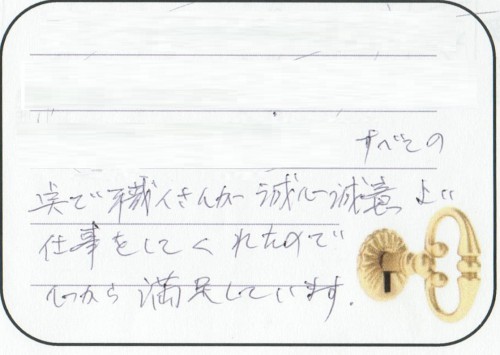 すべての
実で職人さんが誠心誠意
仕事をしてくれたので
心から満足しています.